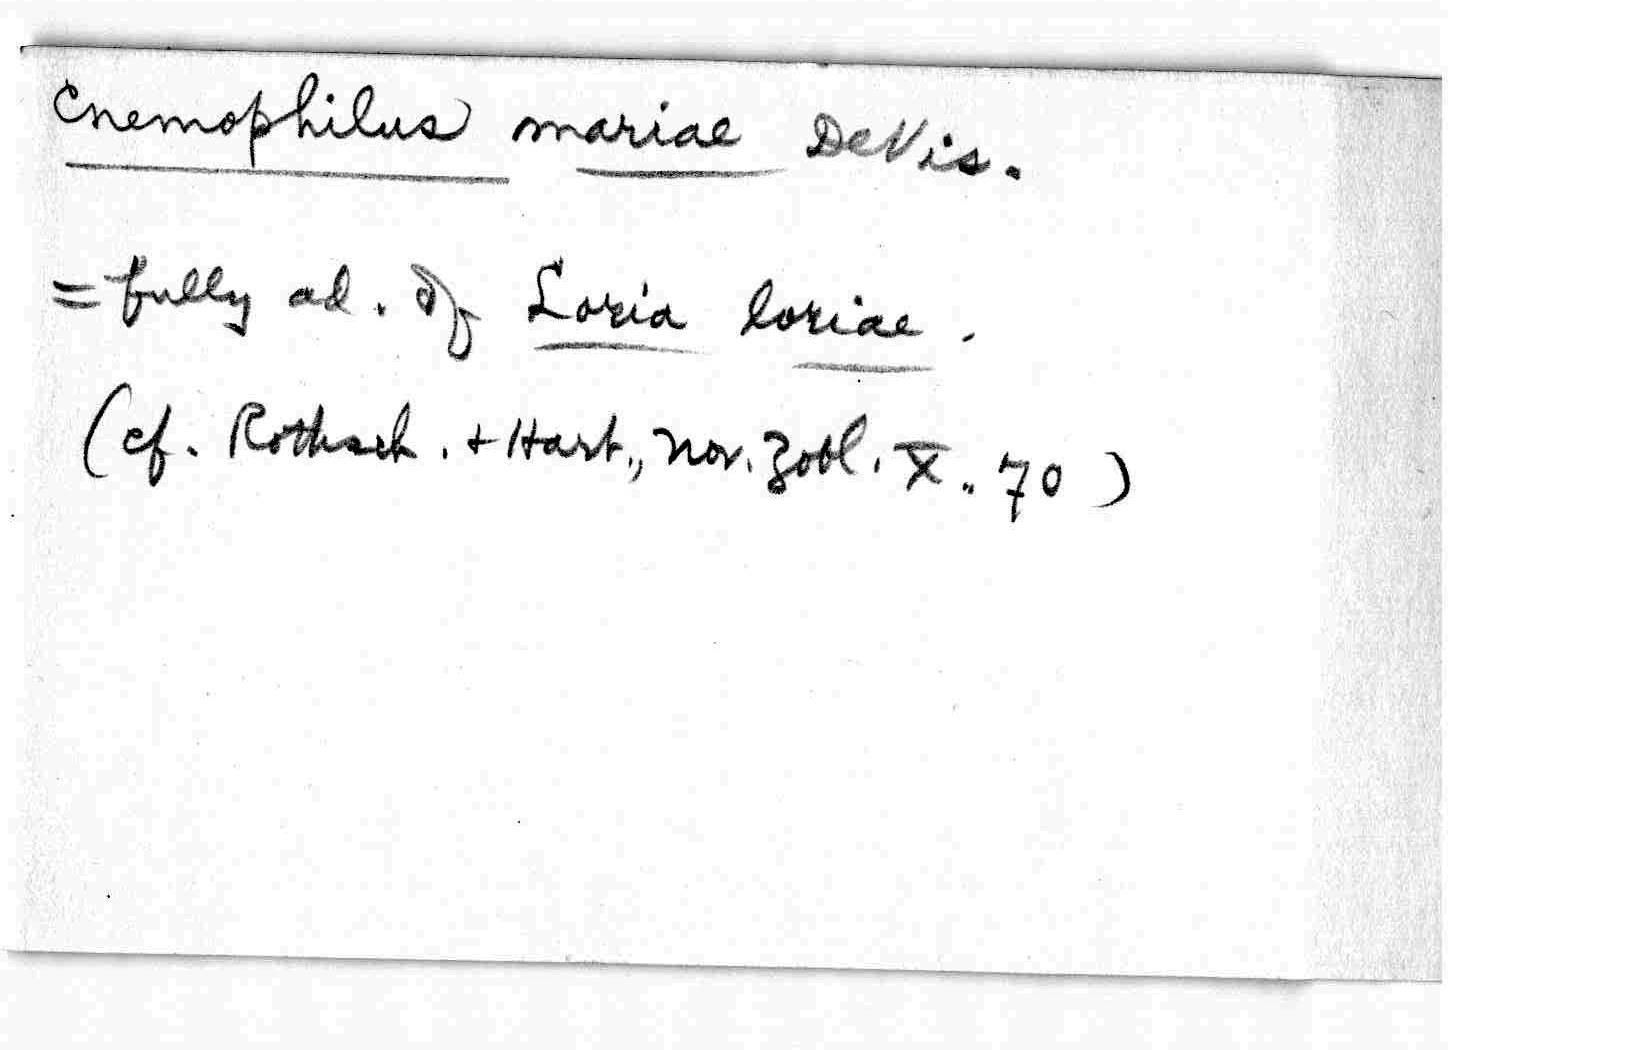 Cnemophilus mariae DeVis.
= fully ad. of Loria loriae.
(cf. Rothsch. + Hart., Nov. Zool. X.. 70)